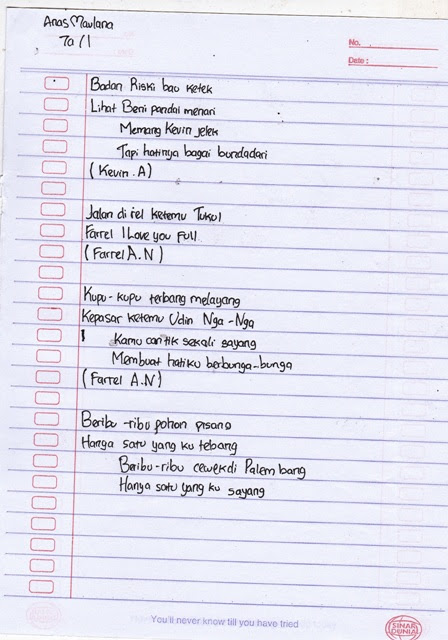 Anas Maulana
7a/1
No.
Date :
Badan Riski bau ketek
Lihat Beni pandai menari
Memang Kevin jelek
Tapi hatinya bagai bundadari
(Kevin .A)
Jalan di rel ketemu Tukul
Farrel I Love you Full
(Farrel A.N)
Kupu-kupu terbang melayang
Kepasar ketemu Udin Nga-Nga
Kamu cantik sekali sayang
Membuat hatiku berbunga-bunga
(Farrel A.N)
Beribu-ribu pohon pisang
Hanya satu yang ku tebang
Beribu-ribu cewek di Palembang
Hanya satu yang ku sayang
You'll never know till you have tried
SINAR DUNIA